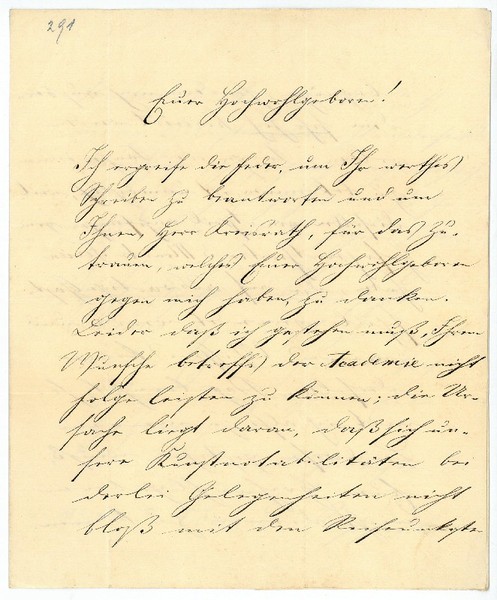 291
Euer Hochwohlgeboren!
Ich ergreife die Feder, um Ihr werthes
Schreiben zu beantworten und um
Ihnen, Herr Kreisrath, für das Zu-
trauen, welches Euer Hochwohlgeboren
gegen mich haben, zu danken.
Leider daß ich gestehen muß, Ihrem
Wunsche betreffs der Academie nicht
folge leisten zu können; die Ur-
sache liegt daran, daß sich un-
sere Kunstnotabilitäten bei
derlei Gelegenheiten nicht
bloß mit den Reiseunkosten